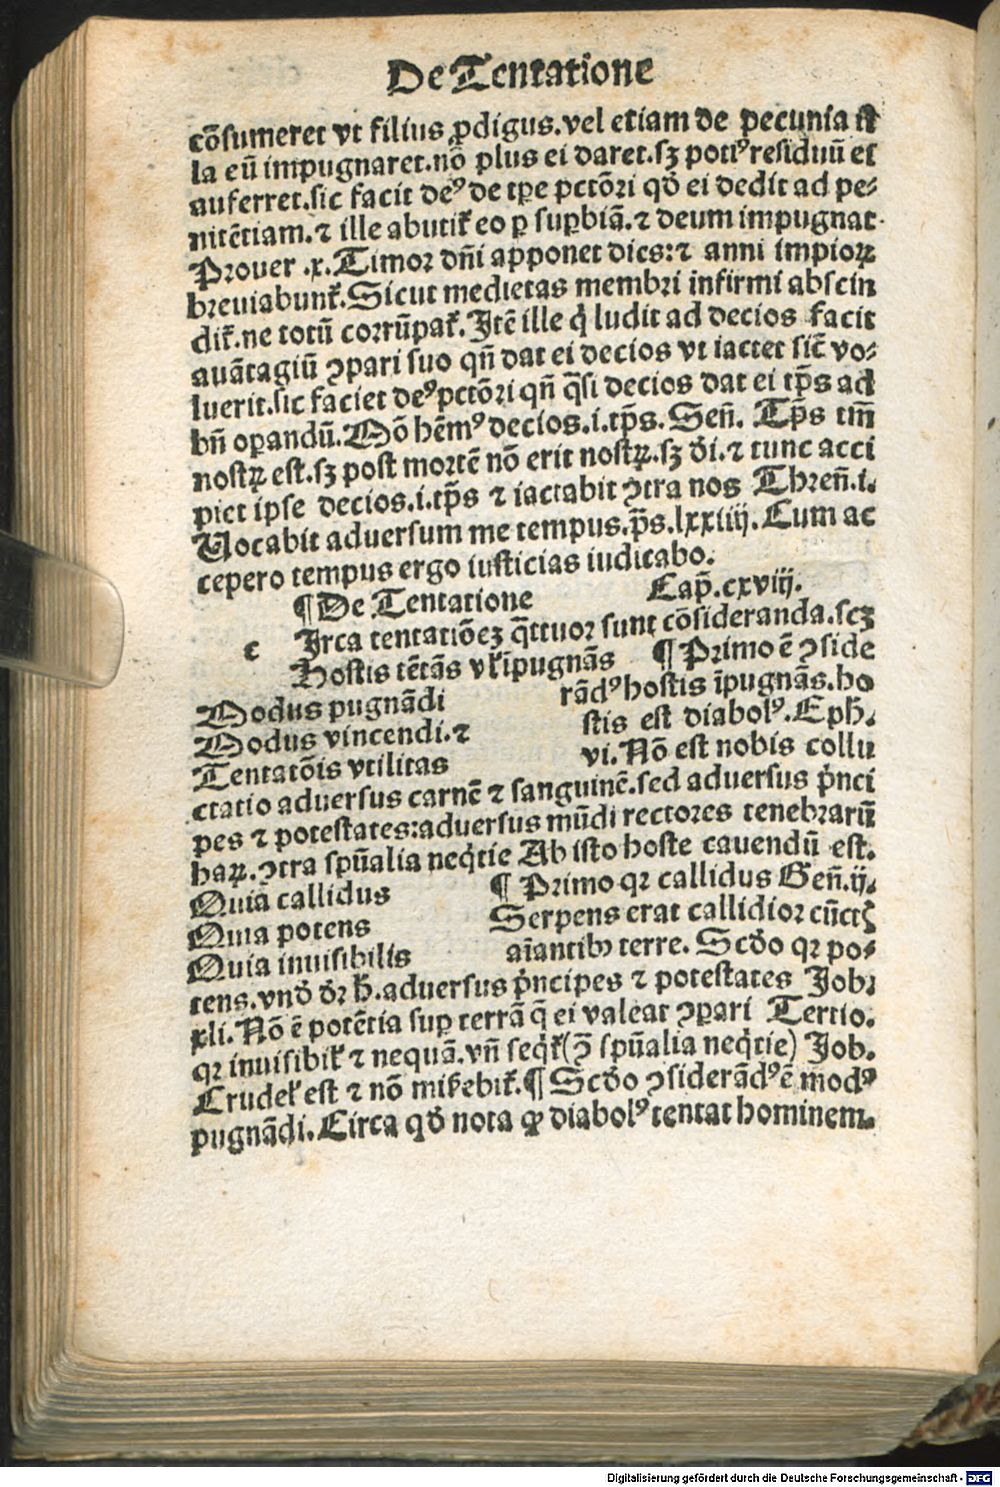 De Tentatione
cōsumeret vt filius ꝓdigus.vel etiam de pecunia il
la eū impugnaret.nō plus ei daret.sꝫ potiꝰ residuū ei
auferret.sic facit deꝰ de tꝑe pctōri qđ ei dedit ad pe-
nitētiam.⁊ ille abutit᷑ eo ꝑ suꝑbiā.⁊ deum impugnat.
Prouer .x.Timor dñi apponet dies:⁊ anni impioꝝ
breuiabunt᷑.Sicut medietas membri infirmi abscin
dit᷑.ne totū corrūpat᷑.Itē ille q̇ ludit ad decios facit
auātagiū ꝯpari suo qñ dat ei decios vt iactet sic̄ vo-
luerit.sic faciet deꝰ pctōri qñ q̄si decios dat ei tp̄s ad
bñ oꝑandū.Mō hēmꝰ decios.i.tp̄s.Señ. Tp̄s tm̄
nostꝝ est.sꝫ post mortē nō erit nostꝝ.sꝫ đi.⁊ tunc acci
piet ipse decios.i.tp̄s ⁊ iactabit ꝯtra nos Threñ.i.
Uocabit aduersum me tempus.p̄s.lxxiiij.Cum ac
cepero tempus ergo iusticias iudicabo.
¶De Tentatione Cap̄.cxviij.
c Irca tentatiōeꝫ q̄ttuor sunt cōsideranda.scꝫ
Hostis tētās vł īpugnās ¶Primo ē ꝯside
Modus pugnādi rādꝰ hostis īpugnās.ho
Modus vincendi.⁊ stis est diabolꝰ.Eph̄.
Tentatōis vtilitas vi.Nō est nobis collu
ctatio aduersus carnē ⁊ sanguinē.sed aduersus p̄nci
pes ⁊ potestates:aduersus mūdi rectores tenebrarū
haꝝ.ꝯtra spūalia neq̇tie Ab isto hoste cauendū est.
Quia callidus ¶ Primo qꝛ callidus Geñ.ij.
Quia potens Serpens erat callidior cūctꝭ
Quia inuisibilis aīantibꝰ terre. Scđo qꝛ po-
tens.vnđ đꝛ h̄.aduersus p̄ncipes ⁊ potestates Job.
xli.Nō ē potētia suꝑ terrā q̄ ei valeat ꝯpari Tertio.
qꝛ inuisibił ⁊ nequā.vñ seq̇t᷑(ꝯ̄ spūalia neq̇tie) Job.
Crudeł est ⁊ nō mis̄ebit᷑.¶ Scđo ꝯsiderādꝰ ē modꝰ
pugnādi.Circa qđ nota ꝙ diabolꝰ tentat hominem.
Digitalisierung gefördert durch die Deutsche Forschungsgemeinschaft - DFG